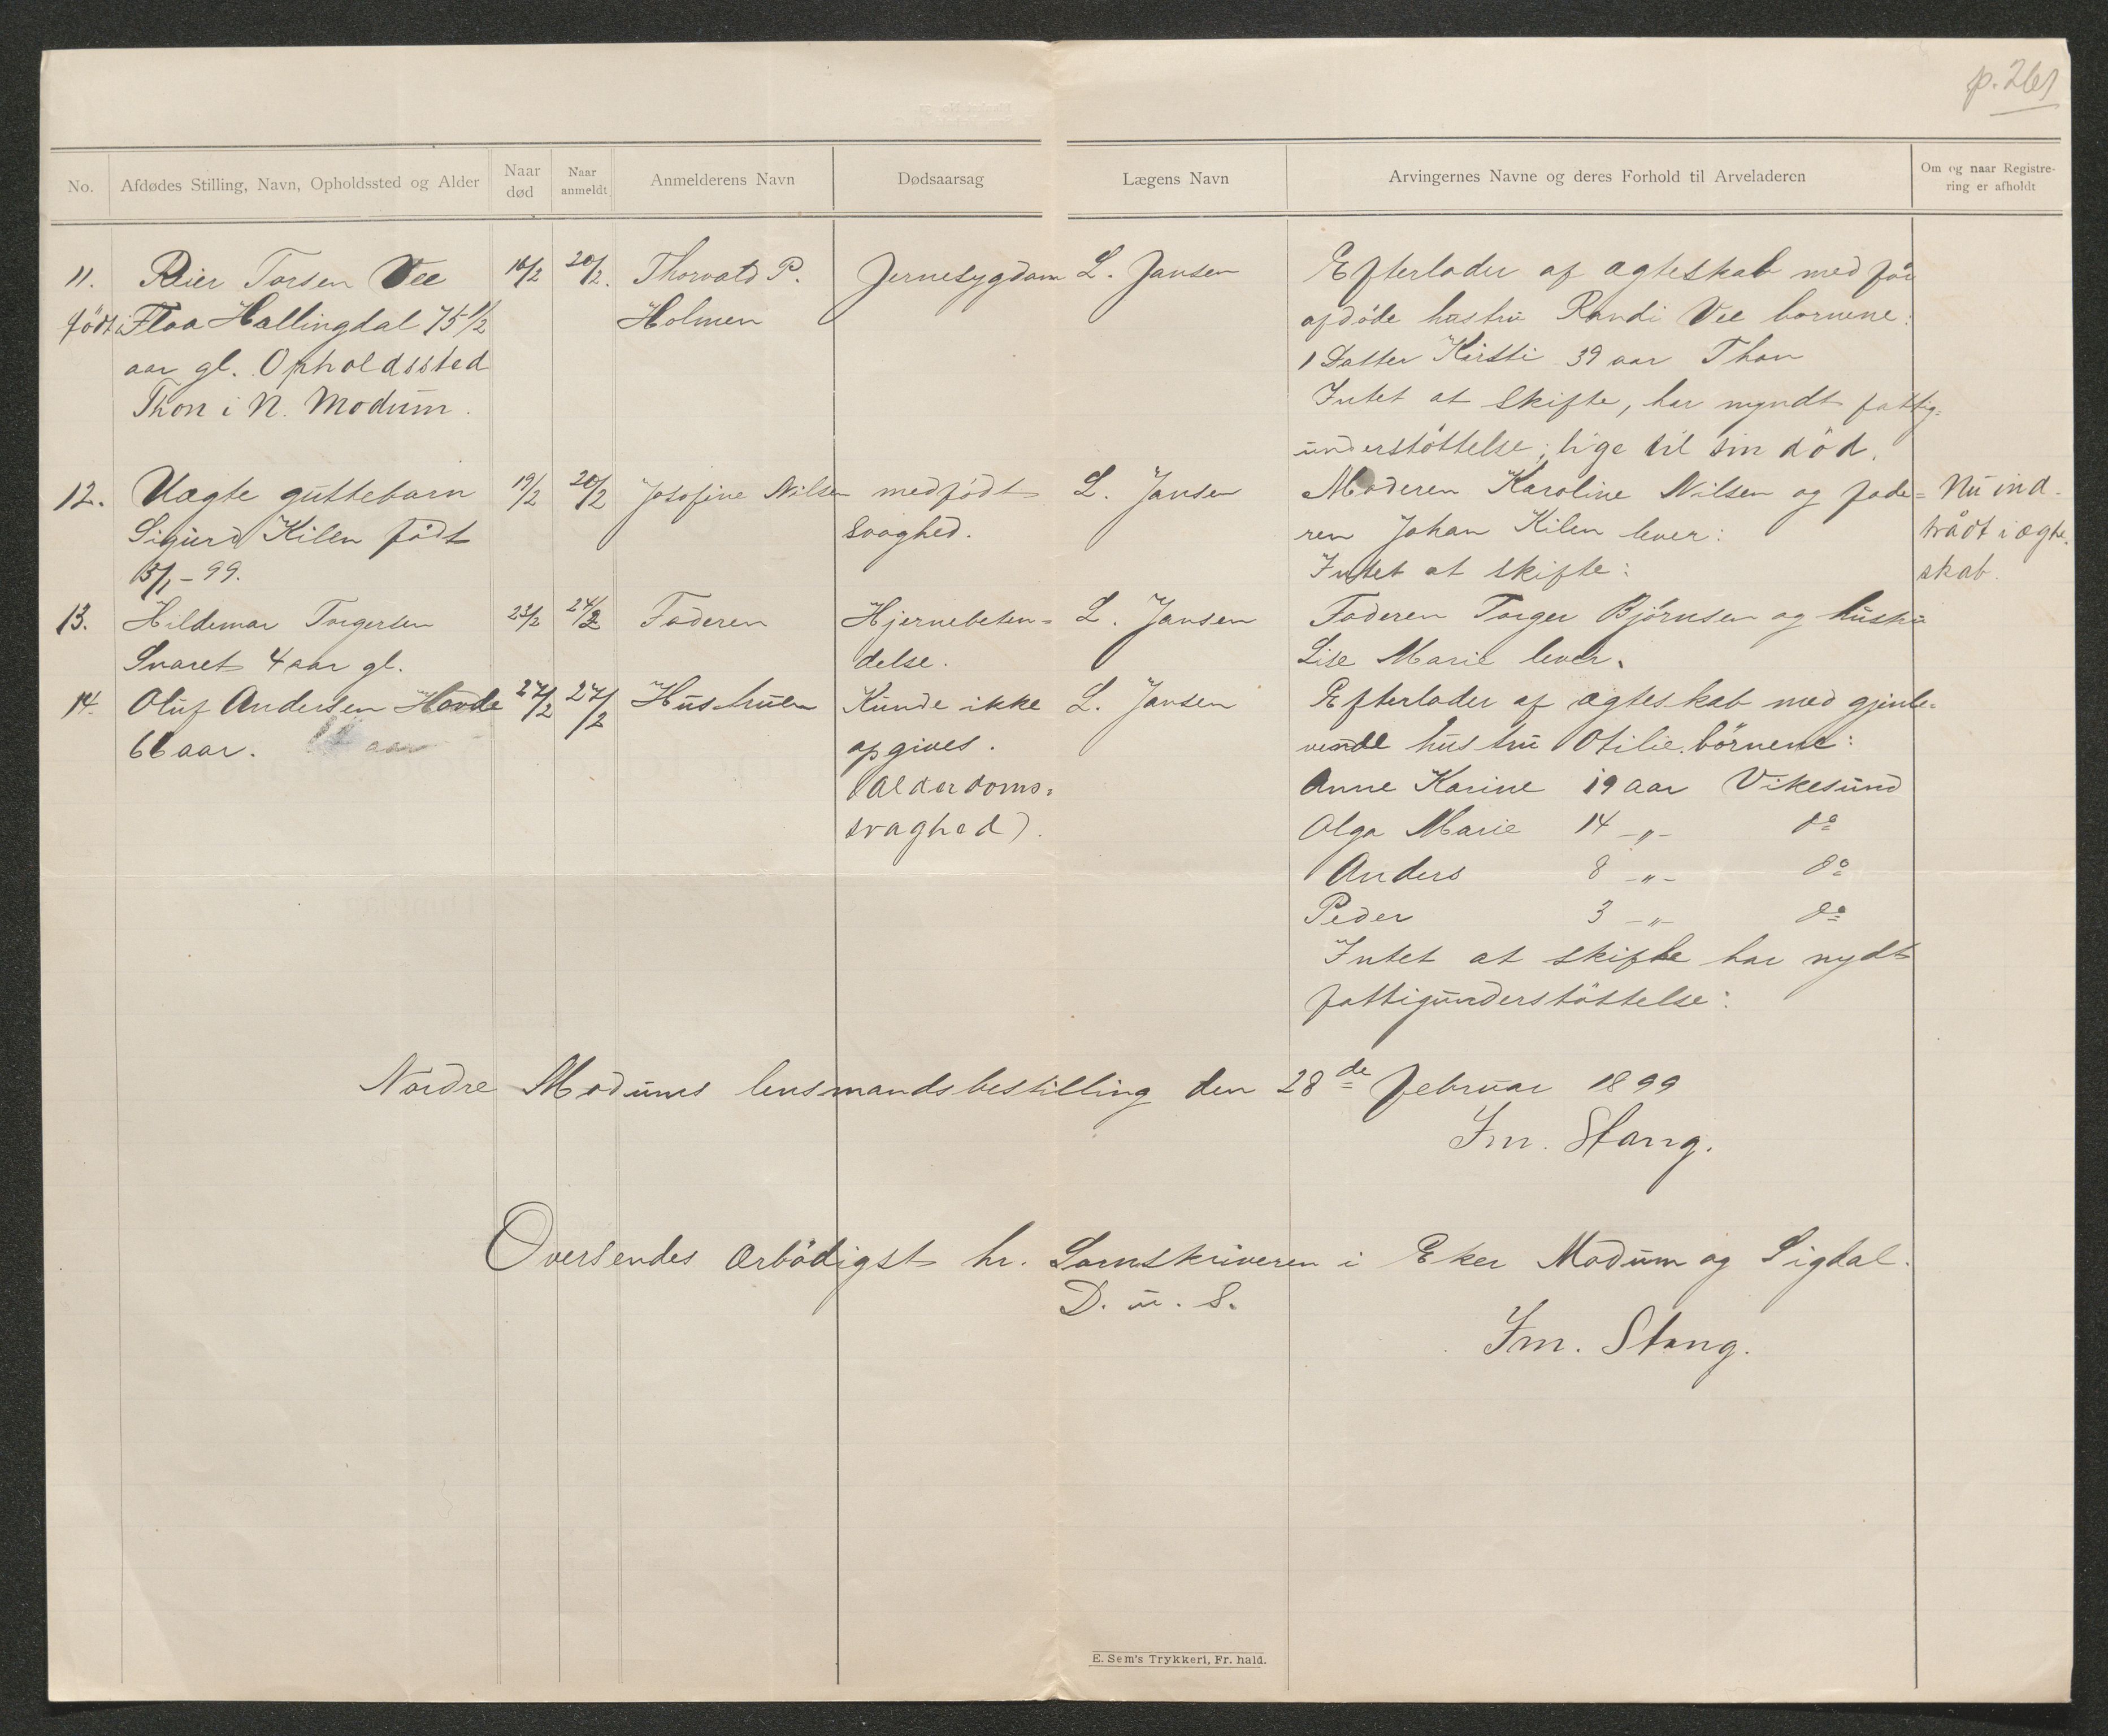 p. 261
No. Afdødes Stilling, Navn, Opholdssted og Alder Naar død Naar anmeldt Anmelderens Navn Dødsaarsag Lægens Navn Arvingernes Navne og deres Forhold til Arveladeren Om og naar Registrering er afholdt
11. Reier Torsen Vee 16/2 20/2. Thorvald P. Jernesygdom L. Jansen Efterlader af ægteskab med før
født i Flaa Hallingdal 75 1/2 Holmen afdøde hustru Randi Vee børnene:
aar gl. Opholdssted 1 Datter Kirsti 39 aar Thon
Thon i N. Modum. Intet at skifte, har nyndt fattig=
understøttelse, lige til sin død.
12. Uægte guttebarn 19/2 20/2 Josefine Nilsen medfødt L. Jansen Moderen Karoline Nilsen og fade= Nu ind-
Sigurd Kilen født svaghed. ren Johan Kilen lever: trådt i ægte-
15/1 - 99. Intet at skifte: skab.
13. Hildemar Torgersen 23/2 24/2 Faderen Hjernebeten= L. Jansen Faderen Torger Bjørnsen og hustru
Svaret 4 aar gl. delse. Lise Marie lever.
14. Oluf Andersen Hovde 27/2 27/2 Hustruen Kunde ikke L. Jansen Efterlader af ægteskab med gjenle=
66 aar. aar opgives. vende hustru Otilie børnene:
(Alderdoms= Anne Karine 19 aar Vikesund
svaghed). Olga Marie 14 -"- do
Anders 8 -"- do
Peder 3 -"- do
Intet at skifte har nydt
fattigunderstøttelse:
Nordre Modums lensmandsbestilling den 28de februar 1899
Im. Stang.
Oversendes ærbødigst hr. Sornskriveren i Eker Modum og Sigdal.
D. u. S.
Im. Stang.
E. Sem's Trykkeri, Fr. hald.